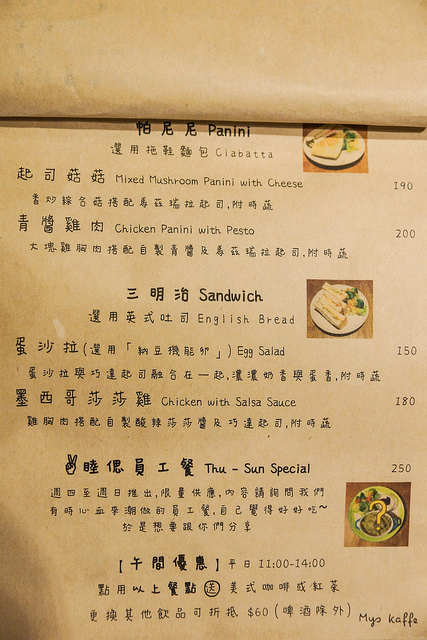 帕尼尼 Panini
選用拖鞋麵包 Ciabatta
起司菇菇 Mixed Mushroom Panini with Cheese 190
香炒綜合菇搭配馬茲瑞拉起司,附時蔬
青醬雞肉 Chicken Panini with Pesto 200
大塊雞胸肉搭配自製青醬及馬茲瑞拉起司,附時蔬
三明治 Sandwich
選用英式吐司 English Bread
蛋沙拉(選用「納豆機能卵」) Egg Salad 150
蛋沙拉與巧達起司融合在一起,濃濃奶香與蛋香,附時蔬
墨西哥莎莎雞 Chicken with Salsa Sauce 180
雞胸肉搭配自製酸辣莎莎醬及巧達起司,附時蔬
睦偲員工餐 Thu - Sun Special 250
週四至週日推出,限量供應,內容請詢問我們
有時心血來潮做的員工餐,自己覺得好好吃~
於是想要跟你們分享
【午間優惠】平日 11:00-14:00
點用以上餐點送美式咖啡或紅茶
更換其他飲品可折抵 $60 (啤酒除外)
Myo kaffe